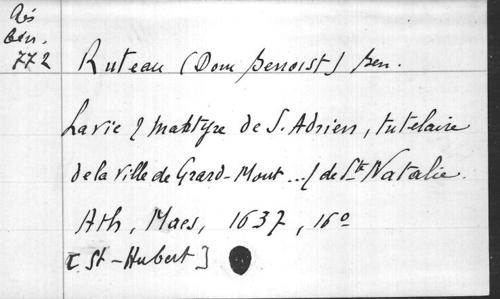 Rés
Bén.
772
Ruteau (Dom Benoist) ben.
La vie & martyre de S. Adrien, tutelaire
de la ville de Grard-Mont .../ de Ste Natalie.
Ath, Maes, 1637, 16o
[St-Hubert]